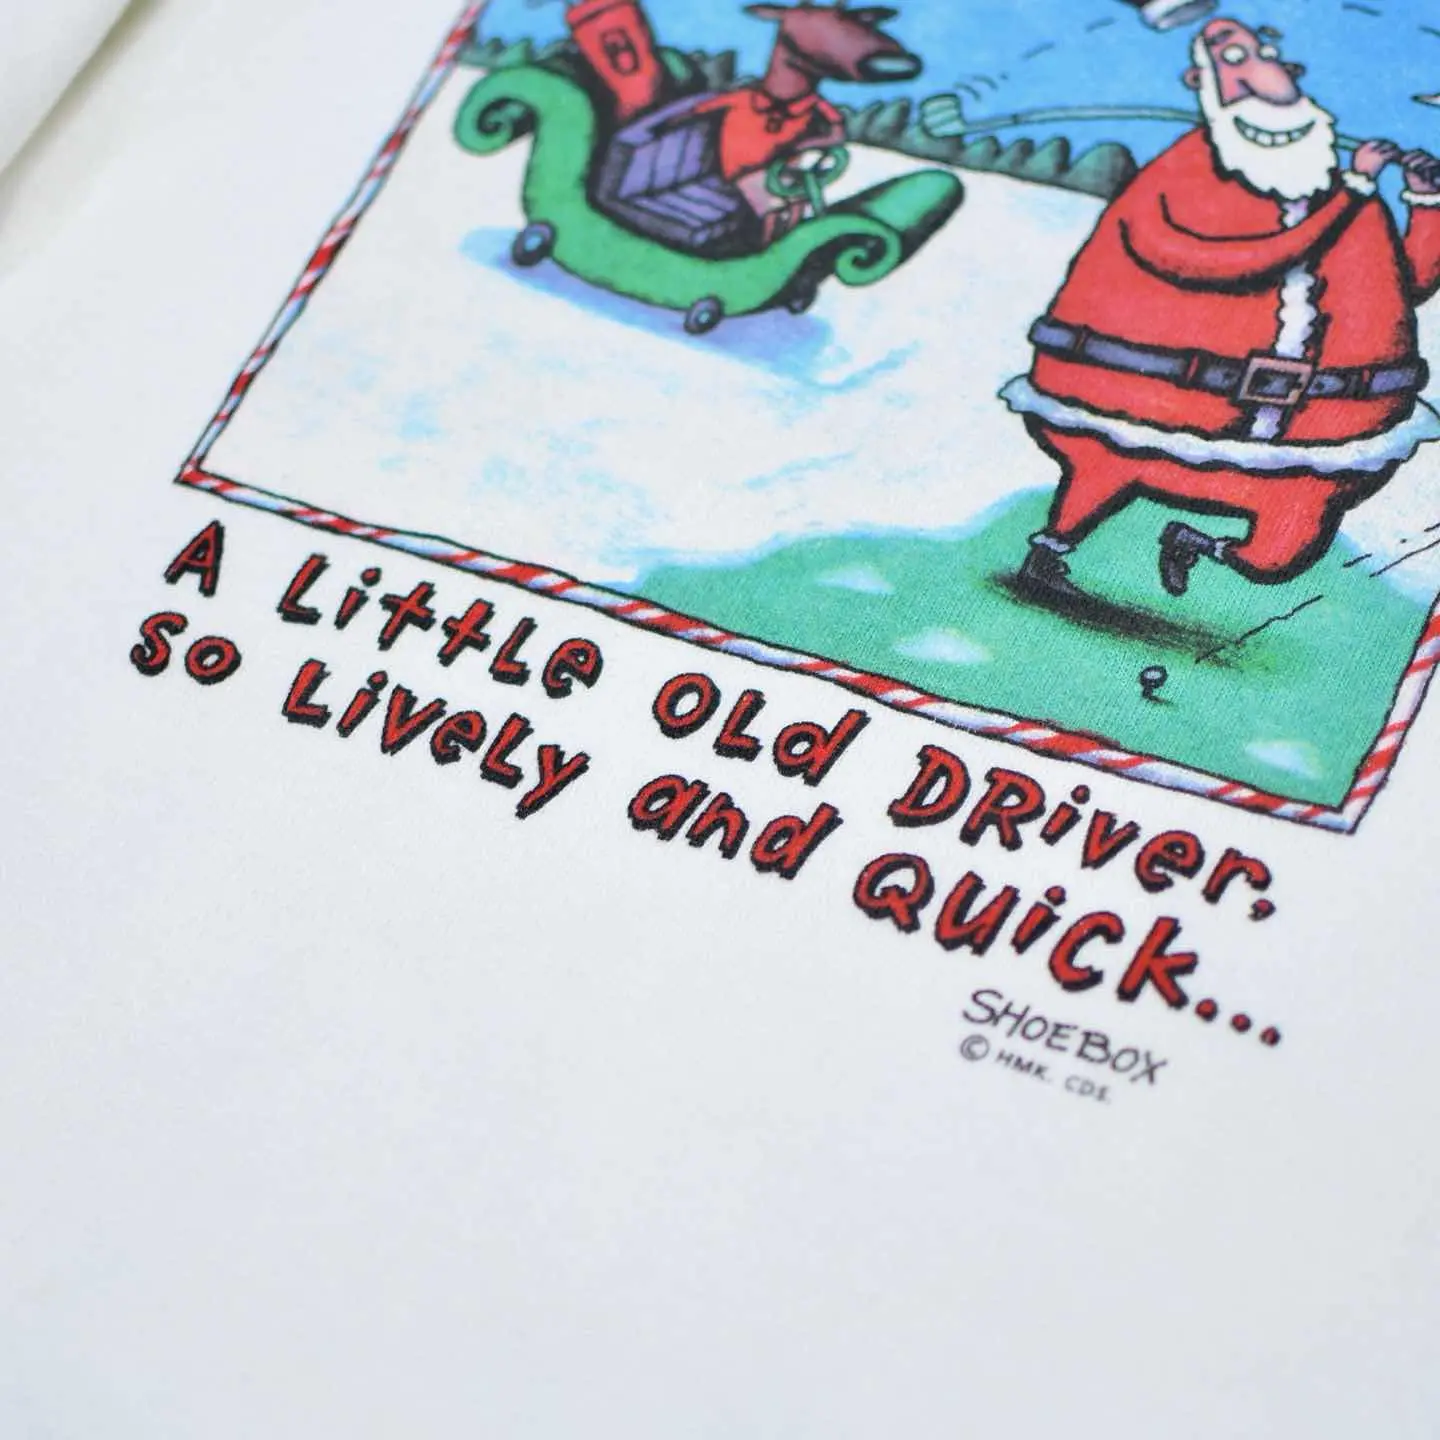 A Little Old Driver,
So Lively and Quick...
SHOEBOX
© HMK. CDS.